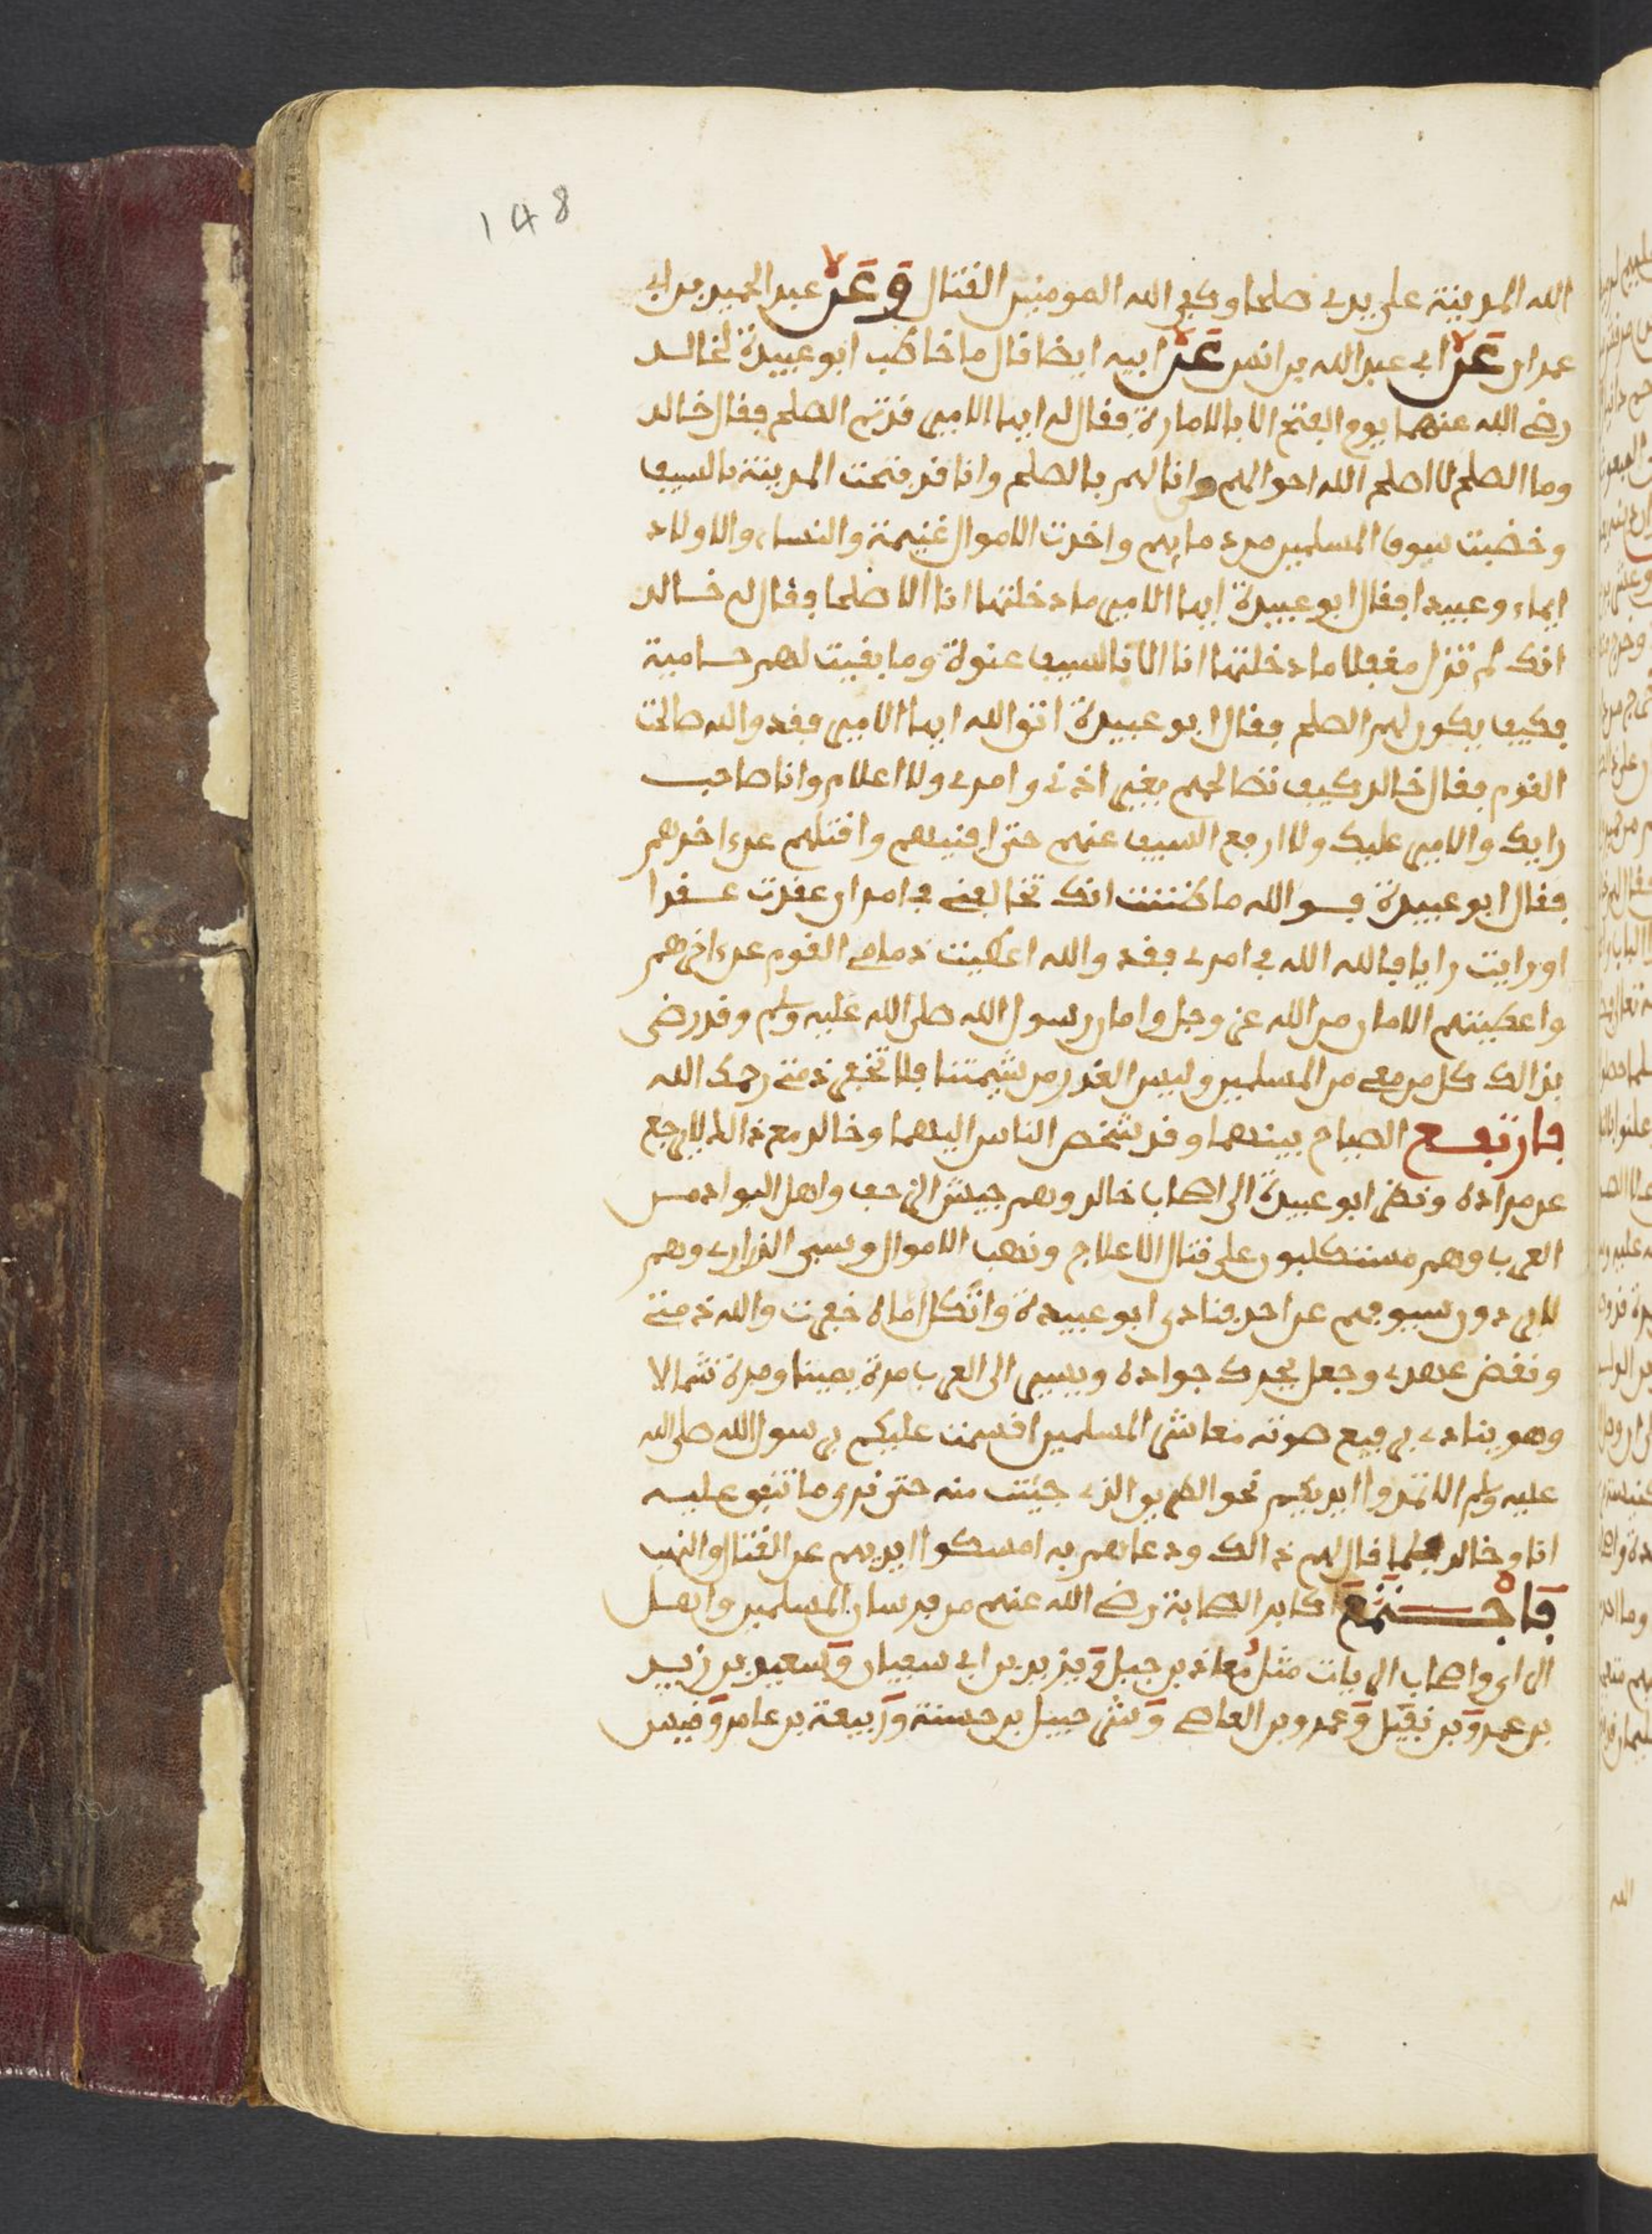 148
الله المدينة على يدي صلحا وكفى الله المومنين القتال وعن عبد الحميد بن ابي
عمران عن ابي عبد الله بن انس عن ابيه ايضا قال ما خاطب ابو عبيدة لخالد
رضي الله عنهما يوم الفتح الا بالامارة فقال له ايها الامير قد تم الصلح فقال خالد
وما الصلح لا اصلح الله احوالهم وانا لهم بالصلح وانا قد فتحت المدينة بالسيف
وخضبت سيوف المسلمين من دمايهم واخذت الاموال غنيمة والنساء والاولاد
اماء وعبيدا فقال ابو عبيدة ايها الامير ما دخلتها انا الا صلحا فقال له خالد
انك لم تزل مغفلا ما دخلتها انا الا بالسيف عنوة وما بقيت لهم حامية
فكيف يكون لهم الصلح فقال ابو عبيدة اتق الله ايها الامير فقد والله صالحت
القوم فقال خالد كيف تصالحهم بغير اذني وامري ولا اعلام وانا صاحب
رايك والامير عليك ولا ارفع السيف عنهم حتى افنيهم واقتلهم عن اخرهم
فقال ابو عبيدة فو الله ما ظننت انك تخالفني في امر ان عقدت عقدا
او رايت رايا فالله الله في امري فقد والله اعطيت ذمامي القوم عن اخرهم
واعطيتهم الامان من الله عز وجل وامان رسول الله صلى الله عليه وسلم وقد رضى
بذالك كل من معي من المسلمين وليس الغدر من شيمتنا فلا تخفر ذمتي رحمك الله
فارتفع الصياح بينهما وقد شخص الناس اليهما وخالد مع ذالك لا يرجع
عن مراده ونظر ابو عبيدة الى اصحاب خالد وهم جيش الزحف واهل البوادي من
العرب وهم مستكلبون على قتال الاعلاج ونهب الاموال وسبي الذراري وهم
لا يردون سيوفهم عن احد فنادى ابو عبيدة واثكل اماه خفرت والله ذمتي
ونقض عهدي وجعل يحرك جواده ويسير الى العرب مرة يمينا ومرة شمالا
وهو ينادي برفيع صوته معاشر المسلمين اقسمت عليكم برسول الله صلى الله
عليه وسلم الا تمدوا ايديكم نحو الطريق الذي جيت منه حتى نرى ما نتفق عليه
انا وخالد فلما قال لهم ذالك ودعاهم به امسكوا ايديهم عن القتال والنهب
فاجتمع اكابر الصحابة رضي الله عنهم من فرسان المسلمين واهل
الراي واصحاب الرايات مثل معاذ بن جبل ويزيد بن ابي سفيان وسعيد بن زيد
بن عمرو بن نفيل وعمرو بن العاصي وشرحبيل بن حسنة وربيعة بن عامر وقيس